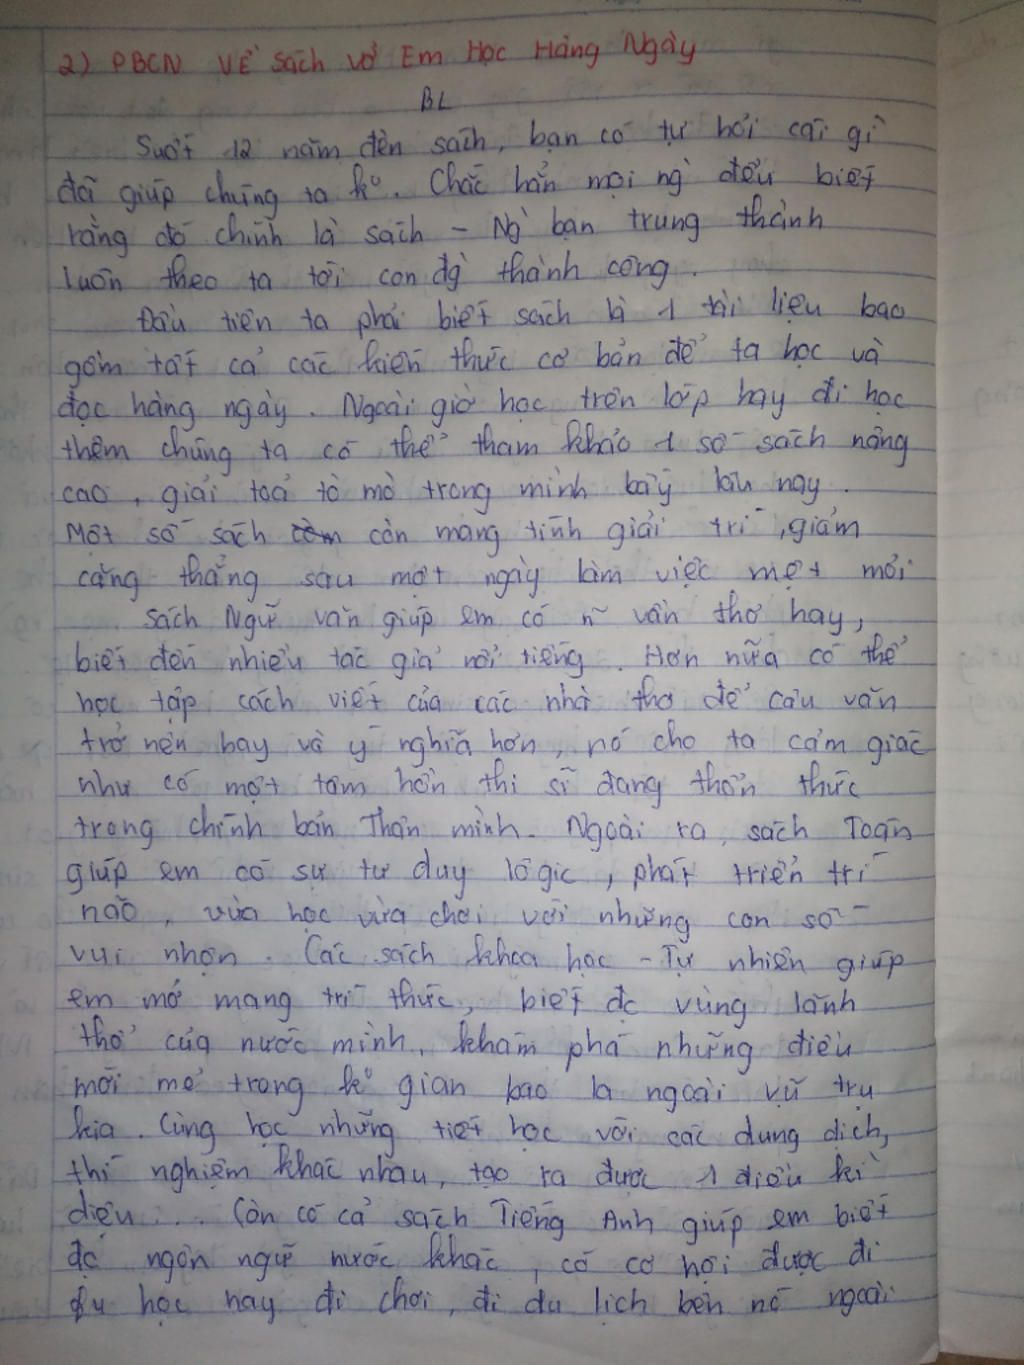 2) PBCN VỀ Sách vở Em Học Hàng Ngày
BL
Suốt 12 năm đèn sách, bạn có tự hỏi cái gì
đã giúp chúng ta ko. Chắc hẳn mọi ng đều biết
rằng đó chính là sách - Ng bạn trung thành
luôn theo ta tới con đg thành công.
Đầu tiên ta phải biết sách là 1 tài liệu bao
gồm tất cả các kiến thức cơ bản để ta học và
đọc hàng ngày. Ngoài giờ học trên lớp hay đi học
thêm chúng ta có thể tham khảo 1 số sách nâng
cao, giải toả tò mò trong mình bấy lâu nay.
Một số sách còn mang tính giải trí, giảm
căng thẳng sau một ngày làm việc mệt mỏi
Sách Ngữ văn giúp em có n~ vần thơ hay,
biết đến nhiều tác giả nổi tiếng. Hơn nữa có thể
học tập cách viết của các nhà thơ để câu văn
trở nên hay và ý nghĩa hơn, nó cho ta cảm giác
như có một tâm hồn thi sĩ đang thổn thức
trong chính bản Thân mình. Ngoài ra, sách Toán
giúp em có sự tư duy lôgic, phát triển trí
não, vừa học vừa chơi với những con số
vui nhộn. Các sách khoa học - Tự nhiên giúp
em mở mang tri thức, biết đc vùng lãnh
thổ của nước mình, khám phá những điều
mới mẻ trong ko gian bao la ngoài vũ trụ
kia. Cùng học những tiết học với các dung dịch,
thí nghiệm khác nhau, tạo ra được 1 điều kì
diệu... Còn có cả sách Tiếng Anh giúp em biết
đc ngôn ngữ nước khác, có cơ hội được đi
du học hay đi chơi, đi du lịch bên nc ngoài